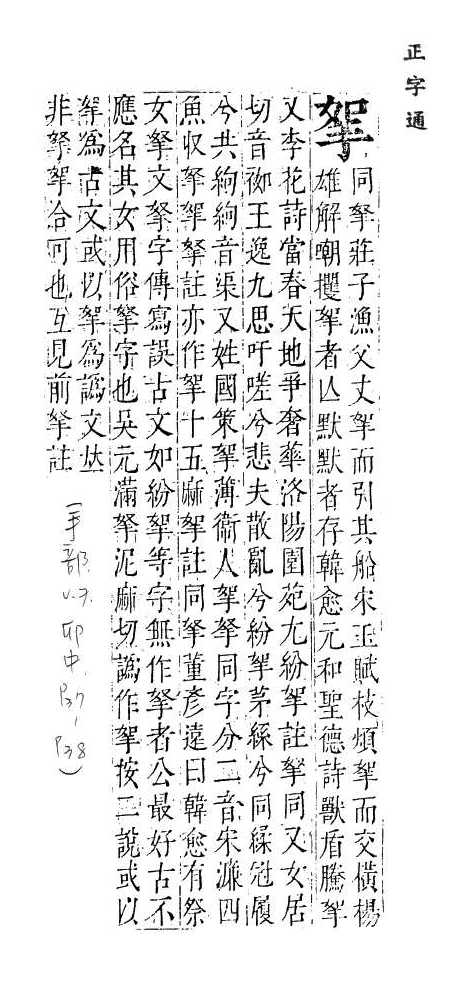 正字通
挐
同拏莊子漁父丈挐而引其船宋玉賦枝煩挐而交橫楊
雄解嘲攫挐者亾默默者存韓愈元和聖德詩獸盾騰挐
又李花詩當春天地爭奢華洛陽園苑尤紛挐註拏同又女居
切音袽王逸九思吁嗟兮悲夫散亂兮紛挐茅絲兮同綜冠屨
兮共絇絇音渠又姓國策挐薄衞人挐拏同字分二音宋濂四
魚収拏挐拏註亦作挐十五麻挐註同拏董彥遠曰韓愈有祭
女拏文拏字傳寫誤古文如紛挐等字無作拏者公最好古不
應名其女用俗拏字也吳元滿拏泥麻切譌作挐按二說或以
挐爲古文或以挐爲譌文𠀤
非拏挐合何也互見前拏註
(手部.v.7.卯中.P37-P38)